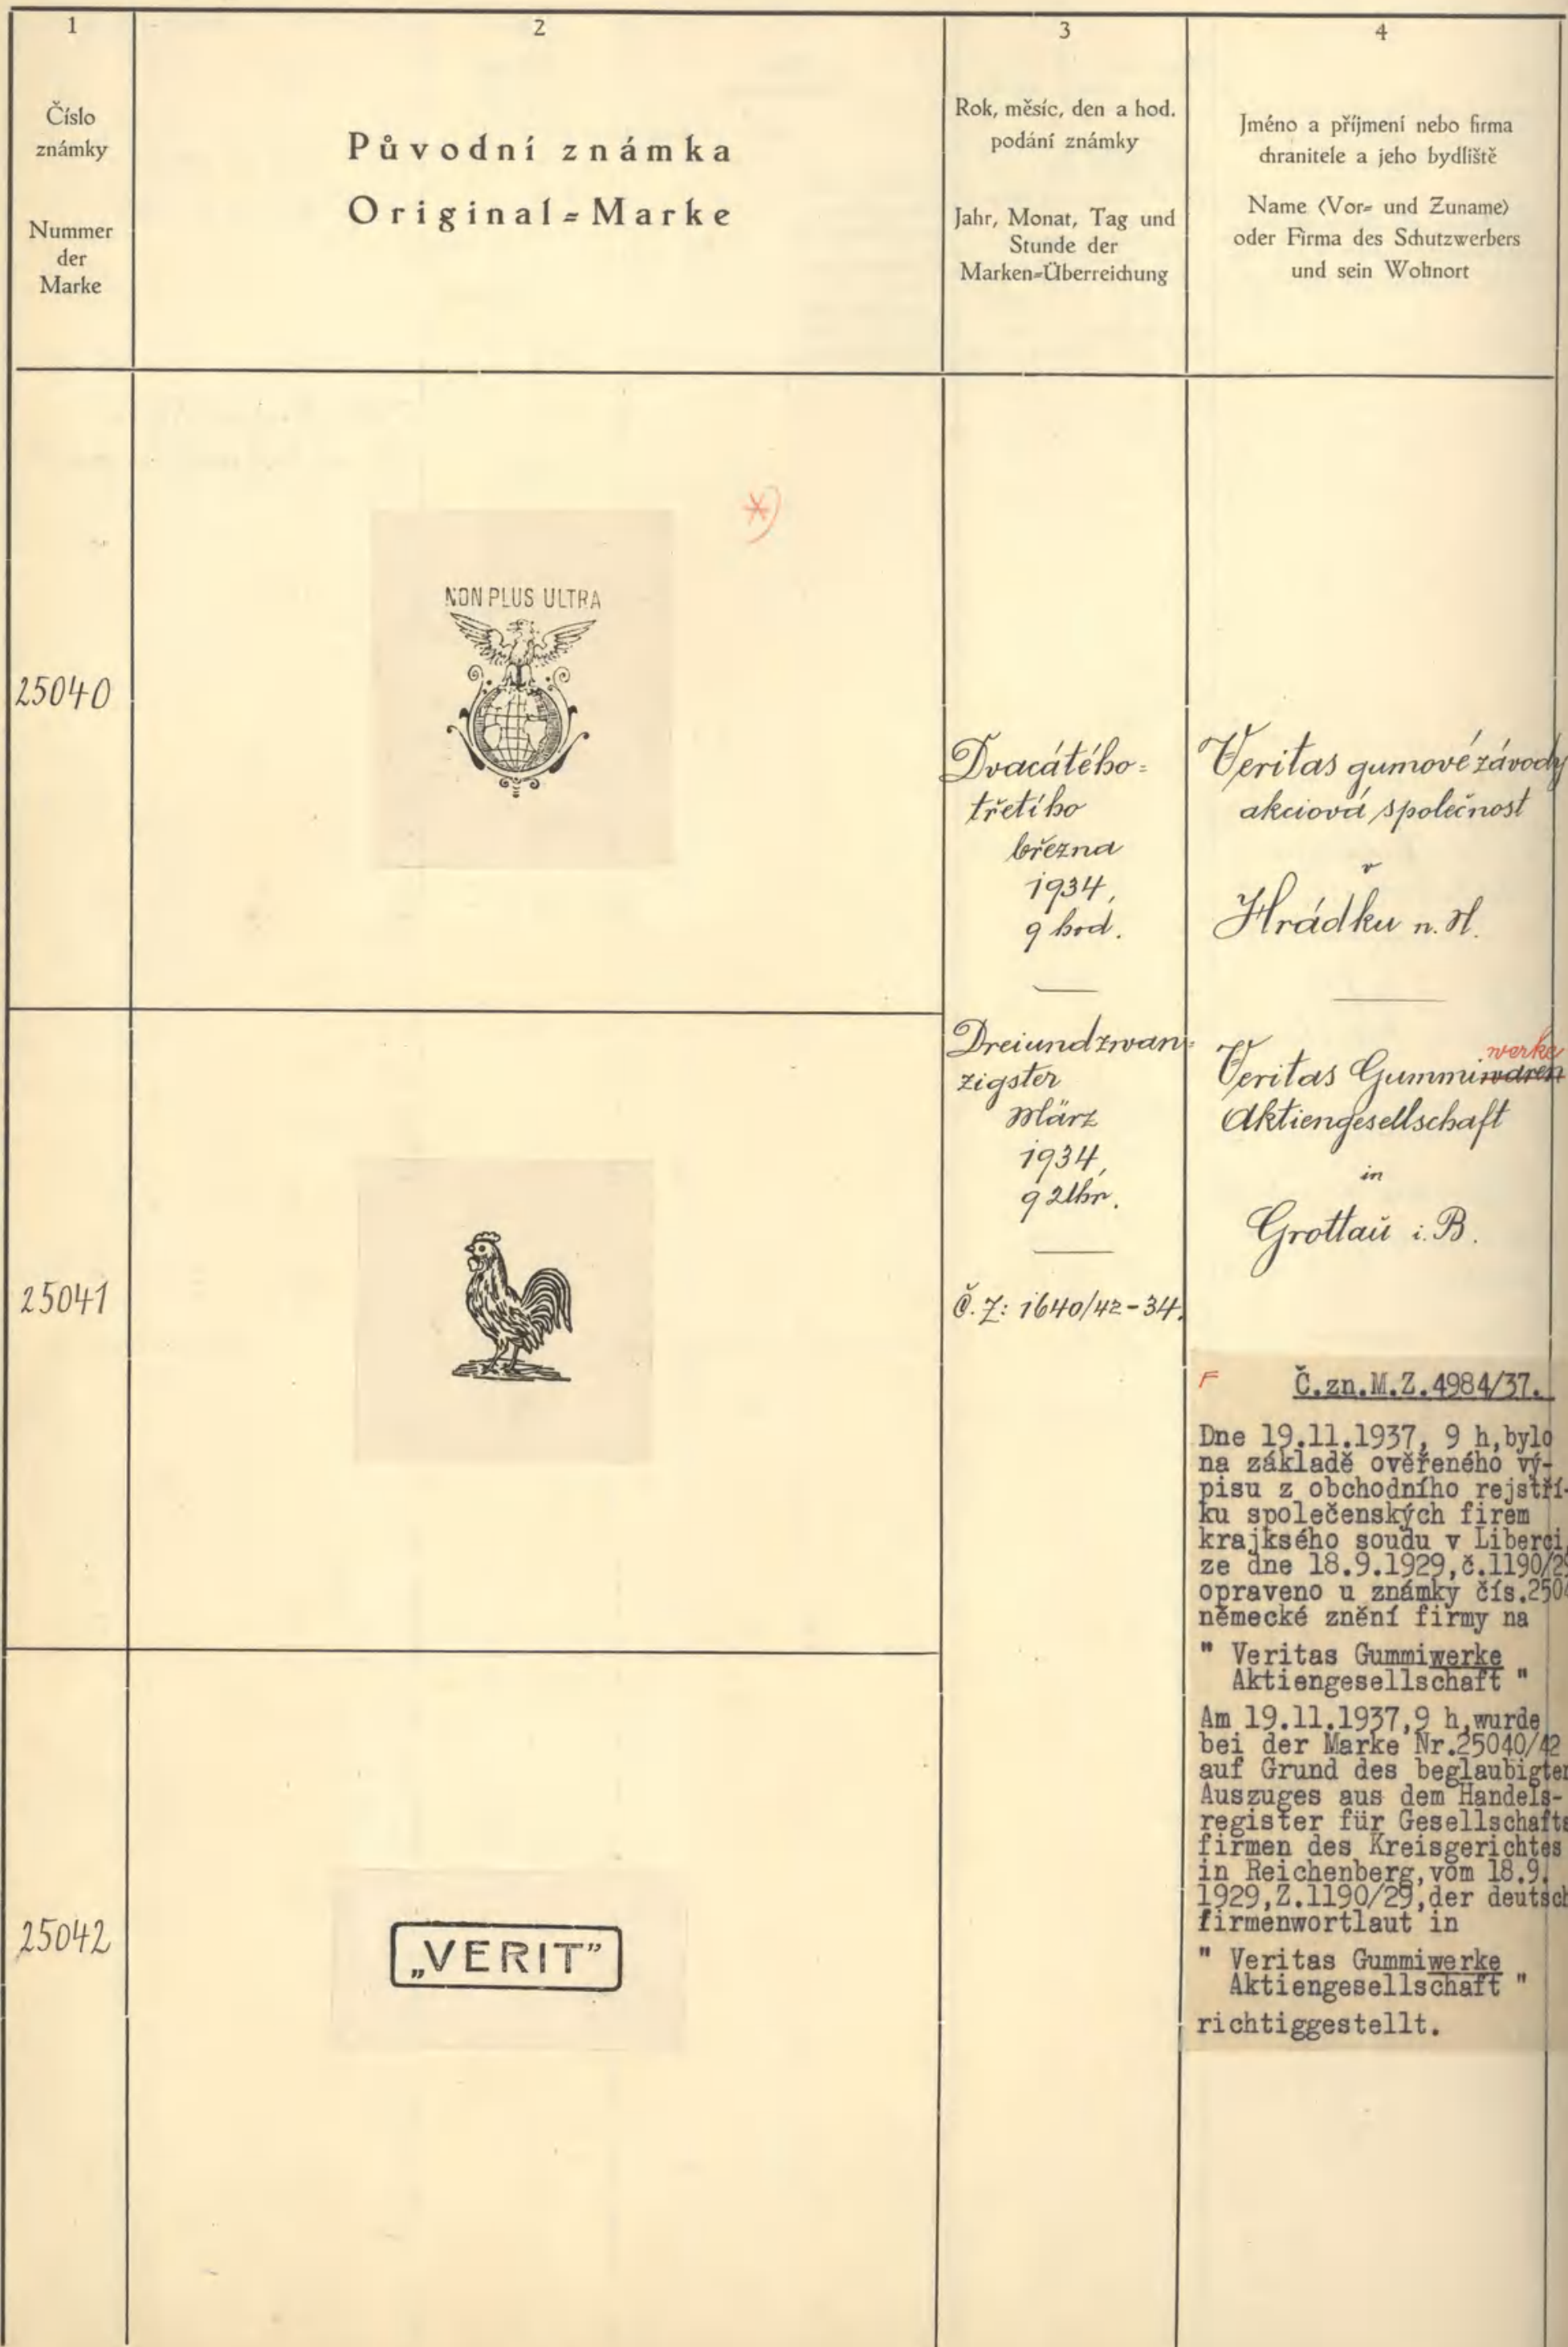 1
Číslo
známky
Nummer
der
Marke
2
Původní známka
Original=Marke
3
Rok, měsíc, den a hod.
podání známky
Jahr, Monat, Tag und
Stunde der
Marken=Überreichung
4
Jméno a příjmení nebo firma
chranitele a jeho bydliště
Name (Vor= und Zuname)
oder Firma des Schutzwerbers
und sein Wohnort
*)
25040
NON PLUS ULTRA
Dvacátého=
třetího
března
1934,
9 hod.
Veritas gumové závody
akciová společnost
v
Hrádku n. N.
25041
Dreiundzwan=
zigster
März
1934,
9 Uhr.
Č. Z: 1640/42-34.
werke
Veritas Gummiwaren
Aktiengesellschaft
in
Grottau i. B.
F Č.zn.M.Z.4984/37.
Dne 19.11.1937, 9 h,bylo
na základě ověřeného vý-
pisu z obchodního rejstří-
ku společenských firem
krajksého soudu v Liberci,
ze dne 18.9.1929,č.1190/29
opraveno u známky čís.2504
německé znění firmy na
" Veritas Gummiwerke
Aktiengesellschaft "
Am 19.11.1937,9 h,wurde
bei der Marke Nr.25040/42
auf Grund des beglaubigten
Auszuges aus dem Handels-
register für Gesellschafts
firmen des Kreisgerichtes
in Reichenberg,vom 18.9.
1929,Z.1190/29,der deutsch
firmenwortlaut in
" Veritas Gummiwerke
Aktiengesellschaft "
richtiggestellt.
25042
„VERIT”